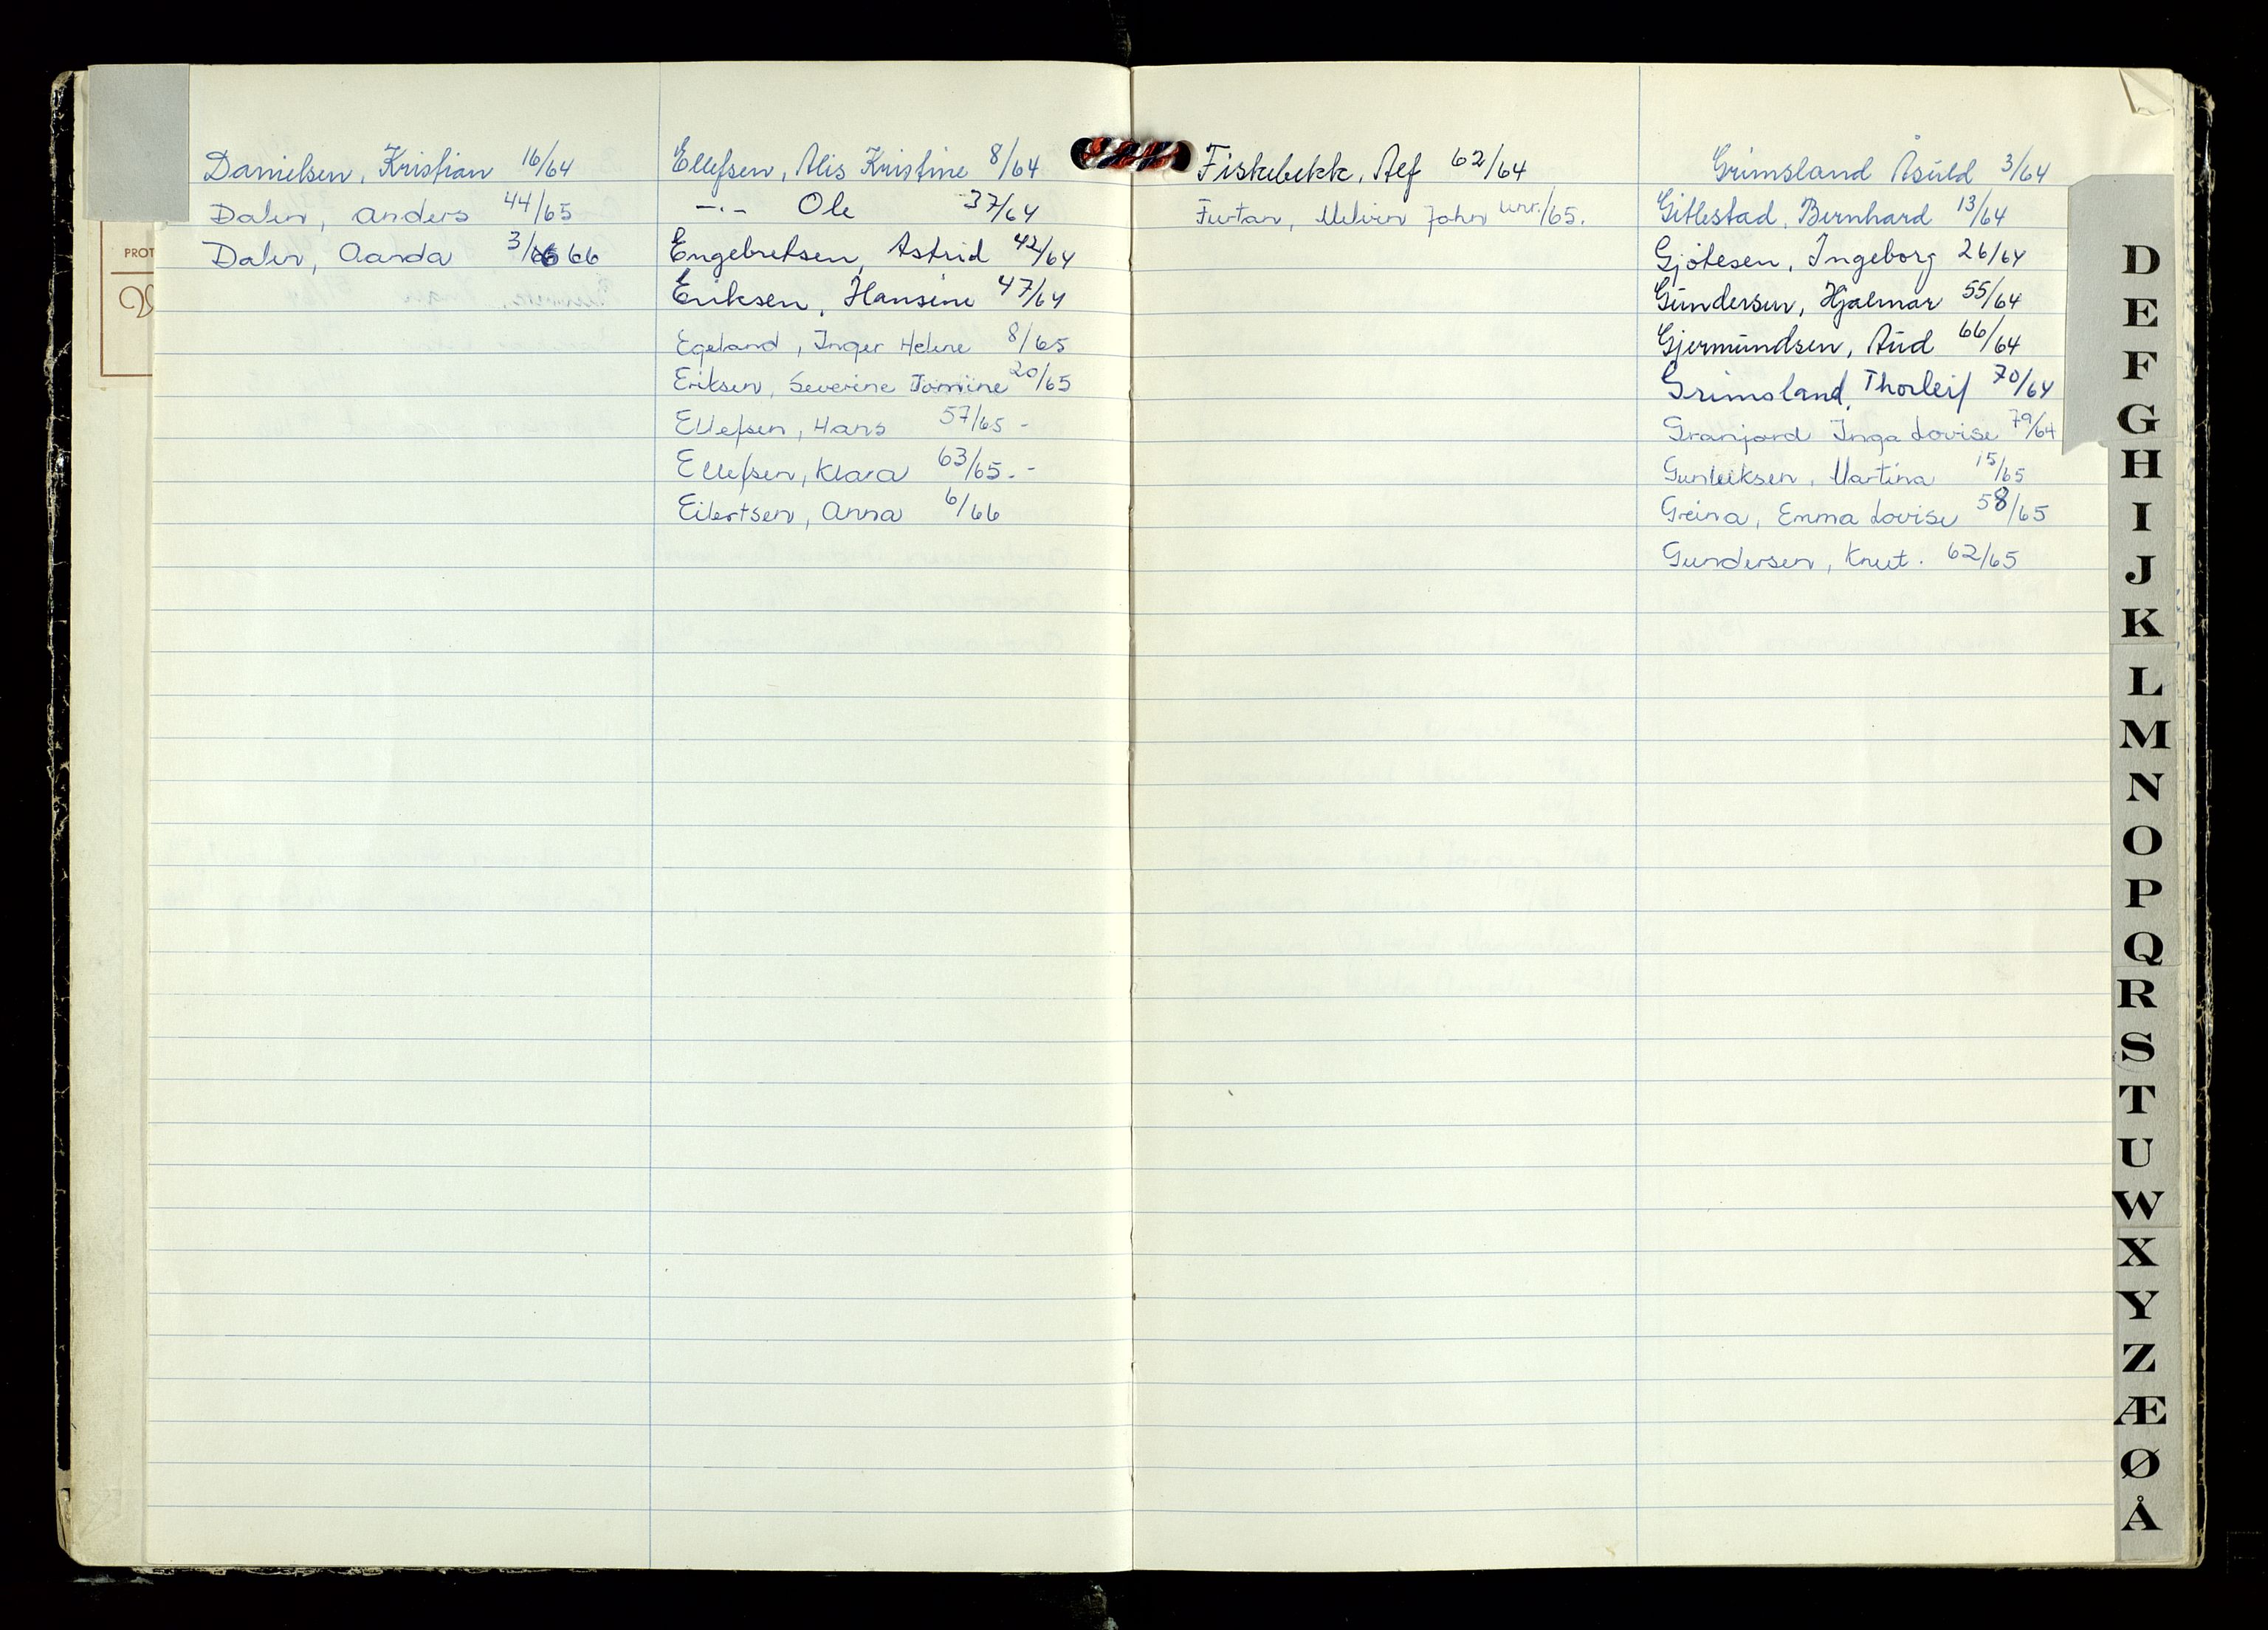 Danielsen, Kristian 16/64
Dalen, Anders 44/65
Dalen, Aanda 3/66 66
PROT
Ellefsen, Alis Kristine 8/64
-.- Ole 37/64
Engebretsen, Astrid 42/64
Eriksen, Hansine 47/64
Egeland, Inger Helene 8/65
Eriksen, Severine Tomine 20/65
Ellefsen, Hans 57/65 -
Ellefsen, Klara 63/65. -
Eilertsen, Anna 6/66
Fiskebekk, Alf 62/64
Melvin John unr./65.
Grimsland Åsuld 3/64
Gitlestad, Bernhard 13/64
Gjotesen, Ingeborg 26/64
Gundersen, Hjalmar 55/64
Gjermundsen, Aud 66/64
Grimsland, Thorleif 70/64
Granjord Inga Lovise 79/64
Gunleiksen, Martina 15/65
Greina, Emma Lovise 58/65
Gundersen, Knut. 62/65
D
E
F
G
H
I
J
K
L
M
N
O
P
Q
R
S
T
U
W
X
Y
Z
Æ
Ø
Å